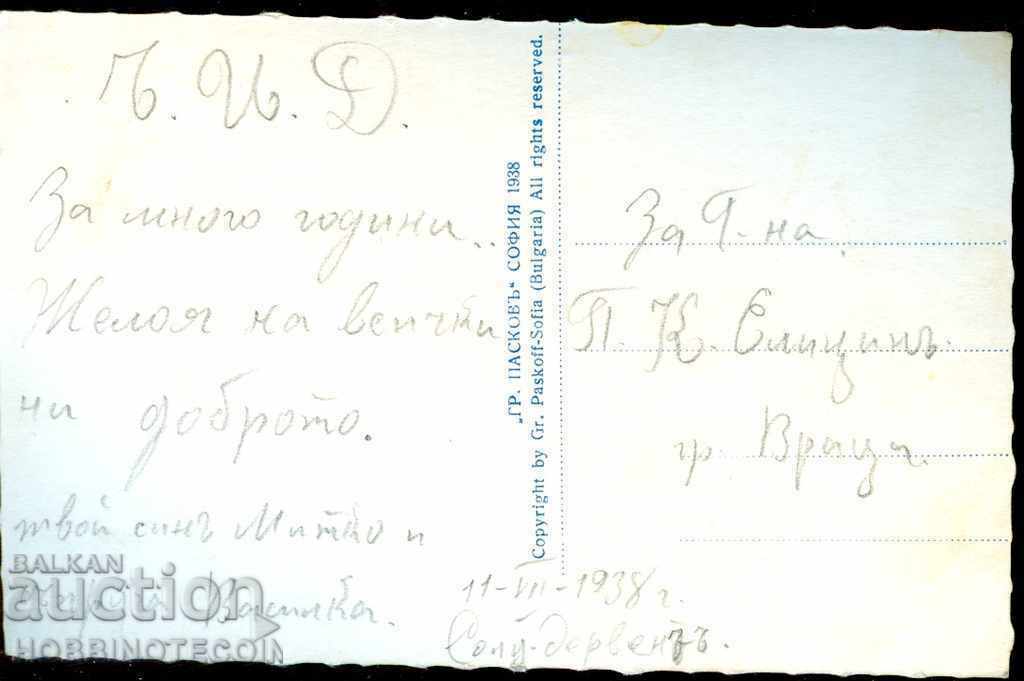 Ч. И. Д.
За много години..
Желая на всички
ни доброто.
твой синъ Митко и
Василка.
„ГР. ПАСКОВЪ“ СОФИЯ 1938
Copyright by Gr. Paskoff-Sofia (Bulgaria) All rights reserved.
За Г-на
П. К. Елицинъ.
гр. Враца.
11-VII-1938 г.
Солу-дервентъ.
BALKAN
auction
HOBBINOTECOIN